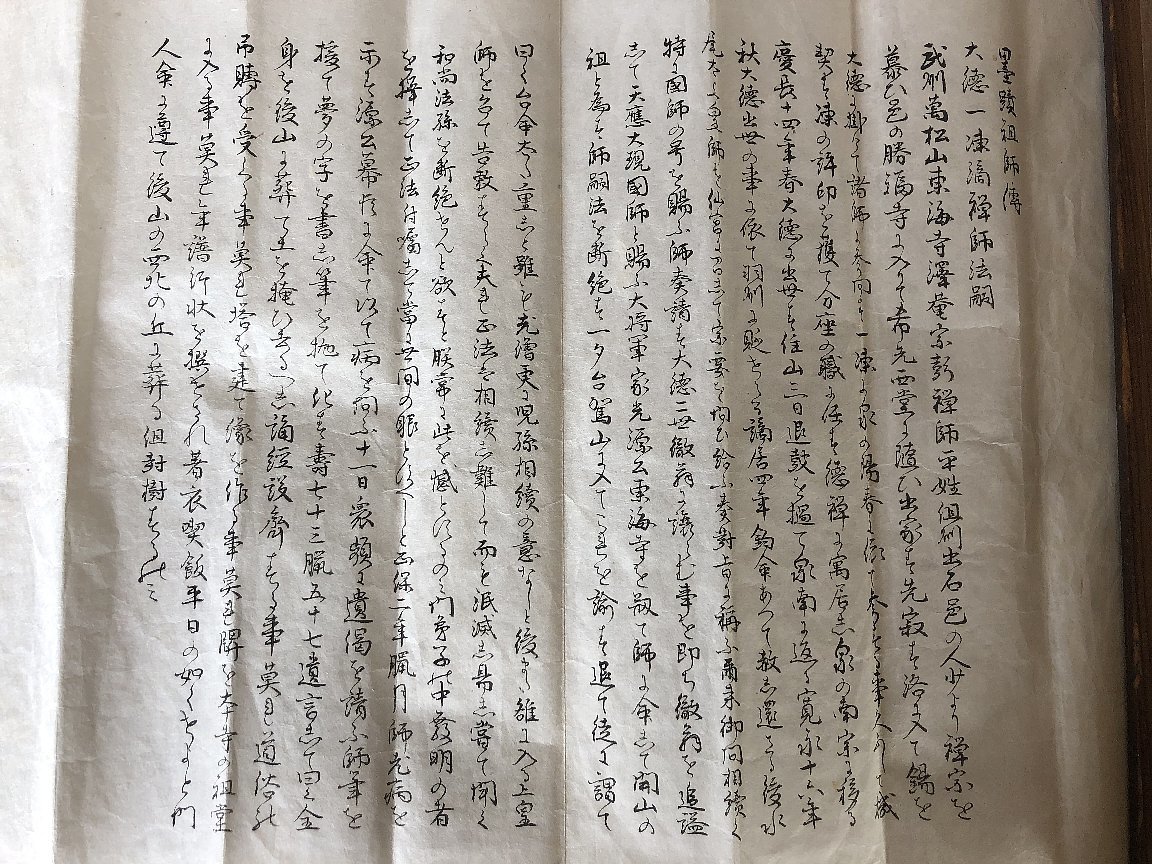 墨蹟祖師傳
大德一凍滴禅師法嗣
武州萬松山東海寺澤菴宗彭禅師平姓但州出石邑の人少より禅宗を
慕ひ邑の勝福寺に入りて希先西堂に隨ひ出家す先寂す洛に入て錫を
大德に掛て諸師に一凍に泉の陽春に
契す凍の詳印を獲て分座の職に任す德禅に寓居し泉の南宗に移る
慶長十四年春大德に出世す住山三日退鼓を撾て泉南に返る寛永十六年
秋大德出世の事に依て羽州に貶せらる謫居四年鈞命あつて赦し還さる後水
尾太上皇師を仙宮に召して宗要を問ひ給ふ奏對旨に稱ふ爾来御問相續く
特に國師の号を賜ふ師奏請す大德二世徹翁に讓らむ事を即ち徹翁を追謚
して天應大現國師と賜ふ大将軍家光源公東海寺を剏て師に命して開山の
祖と為す師嗣法を断絶す一夕台駕山に入てこれを諭す退て徒に謂て
曰く台命太た重しと雖も老僧更に児孫相續の意なしと後また雒に入る上皇
師を召て告教すらく夫れ正法は相續し難して而も泯滅し易し嘗て聞く
和尚法孫を断絶せんと欲すと朕常に此を憾とす の門弟子の中發明の者
を擇して正法付囑して當に世間の眼とすへしと正保二年臘月師老病を
示す源公幕侍に命て以て病を問ふ十一日衆頻に遺偈を請ふ師筆を
援て夢の字を書し筆を抛て化す壽七十三臘五十七遺言して曰全
身を後山に葬て土を掩ひ去るへし誦経設齋する事莫れ道俗の
吊賻を受くる事莫れ塔を建て像を作る事莫れ牌を本寺の祖堂
に入る事莫れ年譜行状を撰するなれ著衣喫飯平日の如くせよと門
人命に遵て後山の西北の丘に葬る但封樹するのミ